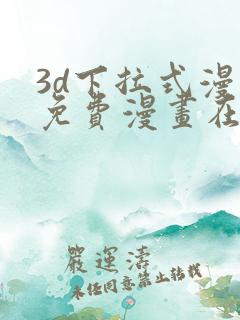 3d下拉式漫
免費漫畫在
嚴運濤
未任同意禁止轉載